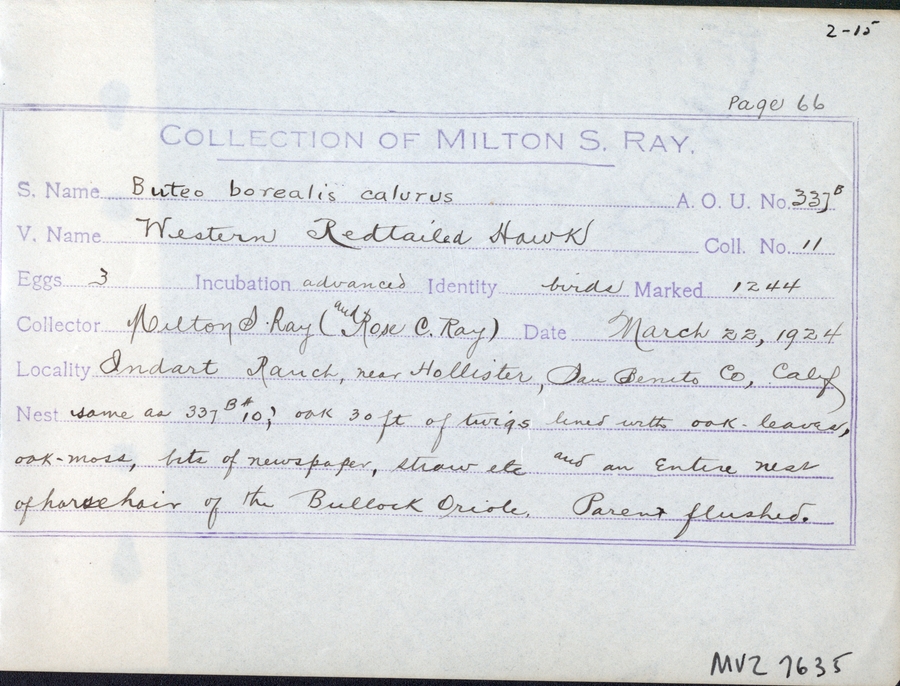 2-15
Page 66
COLLECTION OF MILTON S. RAY.
S. Name Buteo borealis calurus A. O. U. No. 337B
V. Name Western Redtailed Hawk Coll. No. 11
Eggs 3 Incubation advanced Identity birds Marked 1244
Collector Milton S. Ray (and Rose C. Ray) Date March 22, 1924
Locality Indart Ranch, near Hollister, San Benito Co, Calif
Nest same as 337B #10; oak 30 ft of twigs lined with oak-leaves,
oak-moss, bits of newspaper, straw etc and an entire nest
of horsehair of the Bullock Oriole. Parent flushed.
MVZ 7635